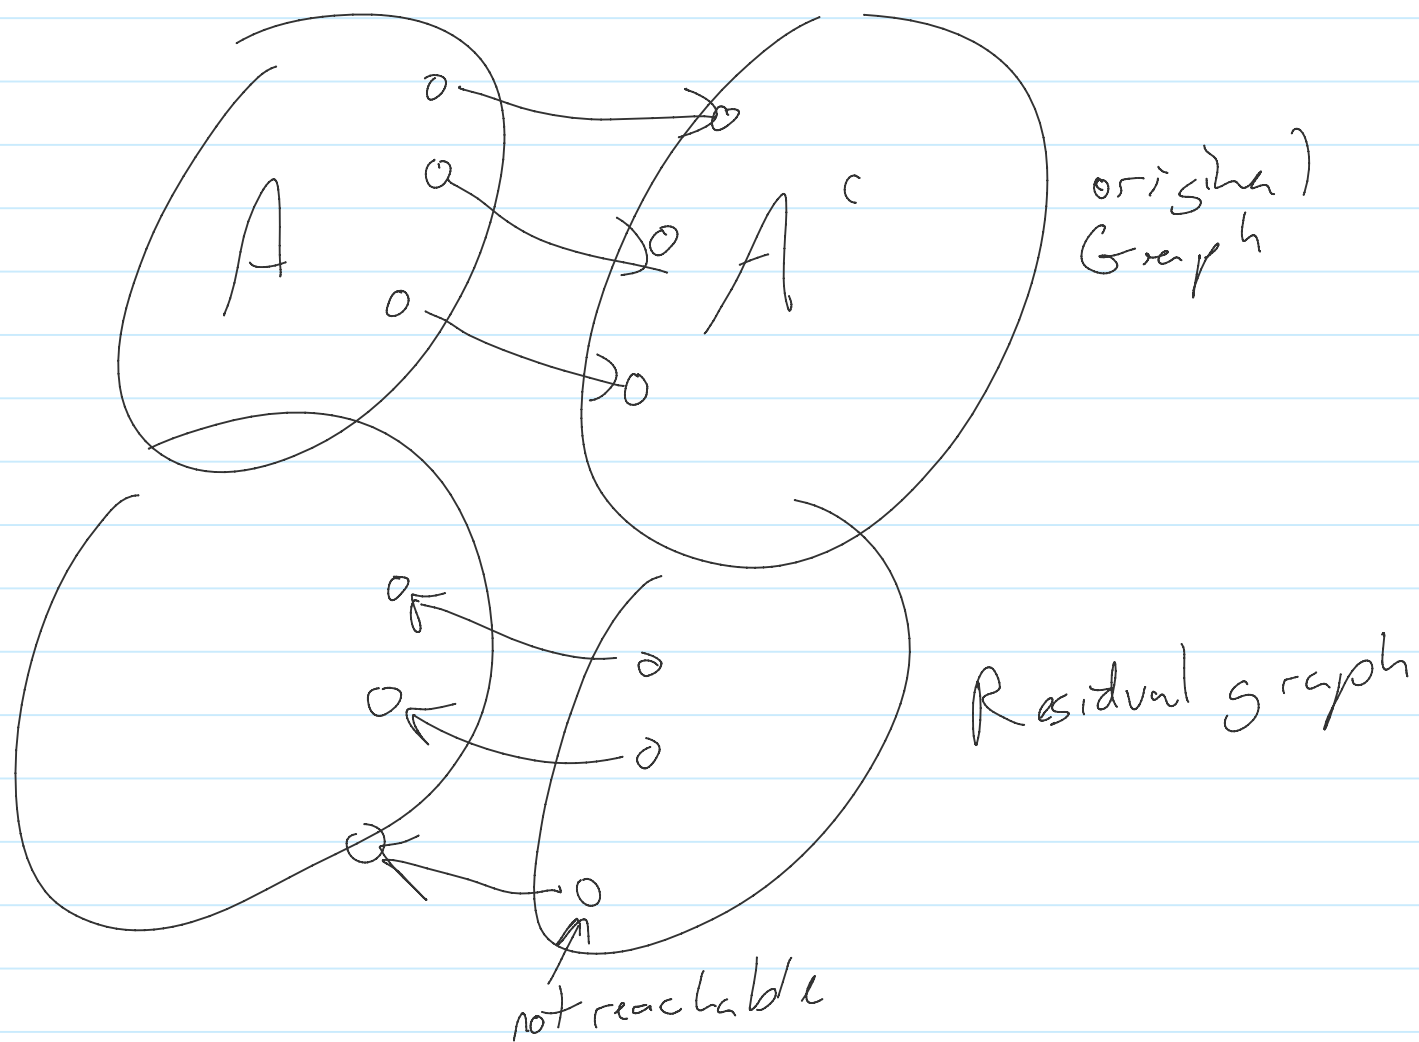 A
A^c
original
Graph
Residual graph
not reachable